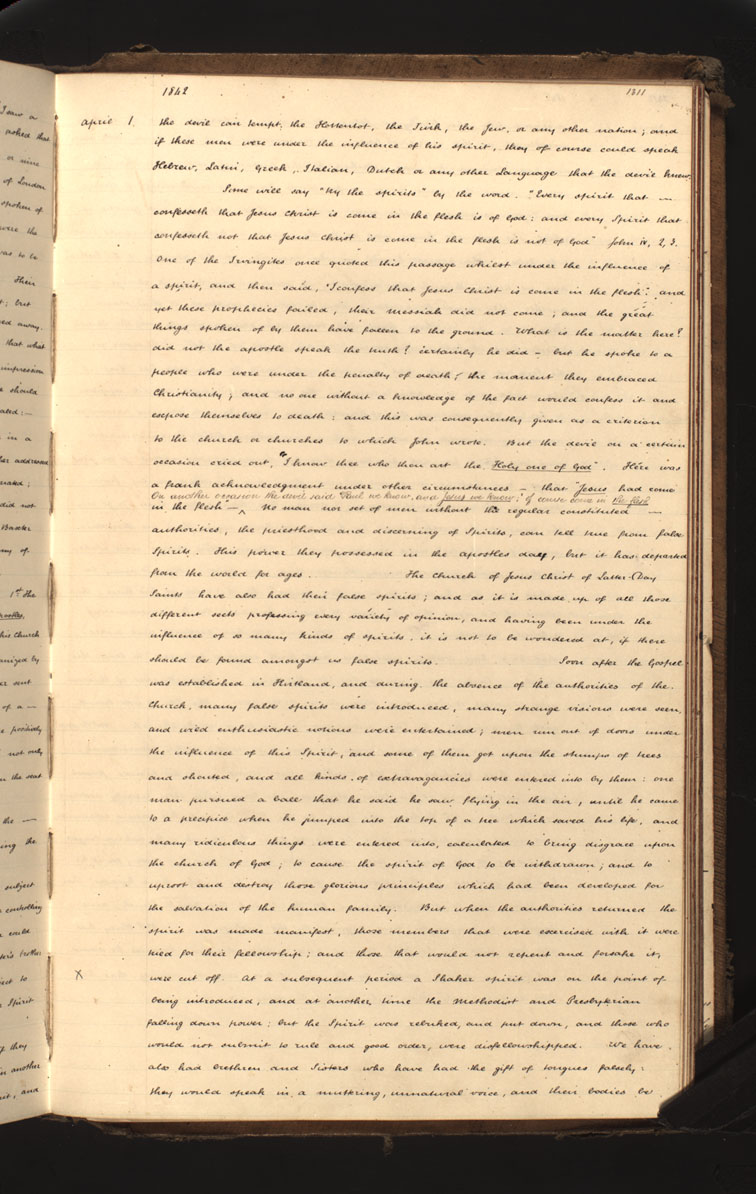 1842
1311
April 1. the devil can tempt, the Hottentot, the Turk, the Jew, or any other nation; and
if these men were under the influence of his spirit, they of course could speak
Hebrew, Latin, Greek, Italian, Dutch or any other Language that the devil knew.
Some will say "try the spirits" by the word. "Every spirit that —
confesseth that Jesus Christ is come in the flesh is of God: and every Spirit that
confesseth not that Jesus Christ is come in the flesh is not of God" John iv, 2, 3.
One of the Irvingites once quoted this passage whilst under the influence of
a spirit, and then said, "I confess that Jesus Christ is come in the flesh": and
yet these prophecies failed, their messiah did not come; and the great
things spoken of by them have fallen to the ground. What is the matter here?
did not the apostle speak the truth? certainly he did — but he spoke to a
people who were under the penalty of death, the moment they embraced
Christianity; and no one without a knowledge of the fact would confess it and
expose themselves to death: and this was consequently given as a criterion
to the church or churches to which John wrote. But the devil on a certain
occasion cried out, "I know thee who then art the Holy one of God". Here was
a frank acknowledgment under other circumstances — that "Jesus had come
On another occasion the devil said "Paul we know, and Jesus we know": of course come in the flesh
in the flesh — ^ No man nor set of men without the regular constituted —
authorities, the priesthood and discerning of Spirits, can tell true from false
Spirits. This power they possessed in the apostles day, but it has departed
from the world for ages. The Church of Jesus Christ of Latter-Day
Saints have also had their false spirits; and as it is made up of all those
different sects professing every variety of opinion, and having been under the
influence of so many kinds of spirits, it is not to be wondered at, if there
should be found amongst us false spirits. Soon after the Gospel
was established in Kirtland, and during the absence of the authorities of the
Church, many false spirits were introduced, many strange visions were seen,
and wild enthusiastic notions were entertained; men run out of doors under
the influence of this Spirit, and some of them got upon the stumps of trees
and shouted, and all kinds of extravagancies were entered into by them: one
man pursued a ball that he said he saw flying in the air, until he came
to a precipice when he jumped into the top of a tree which saved his life, and
many ridiculous things were entered into, calculated to bring disgrace upon
the church of God; to cause the spirit of God to be withdrawn; and to
uproot and destroy those glorious principles which had been developed for
the salvation of the human family. But when the authorities returned the
spirit was made manifest, those members that were exercised with it were
tried for their fellowship; and those that would not repent and forsake it,
X were cut off. At a subsequent period a Shaker spirit was on the point of
being introduced, and at another time the Methodist and Presbyterian
falling down power; but the Spirit was rebuked, and put down, and those who
would not submit to rule and good order, were disfellowshipped. We have
also had brethren and Sisters who have had the gift of tongues falsely:
they would speak in a muttering, unnatural voice, and their bodies be